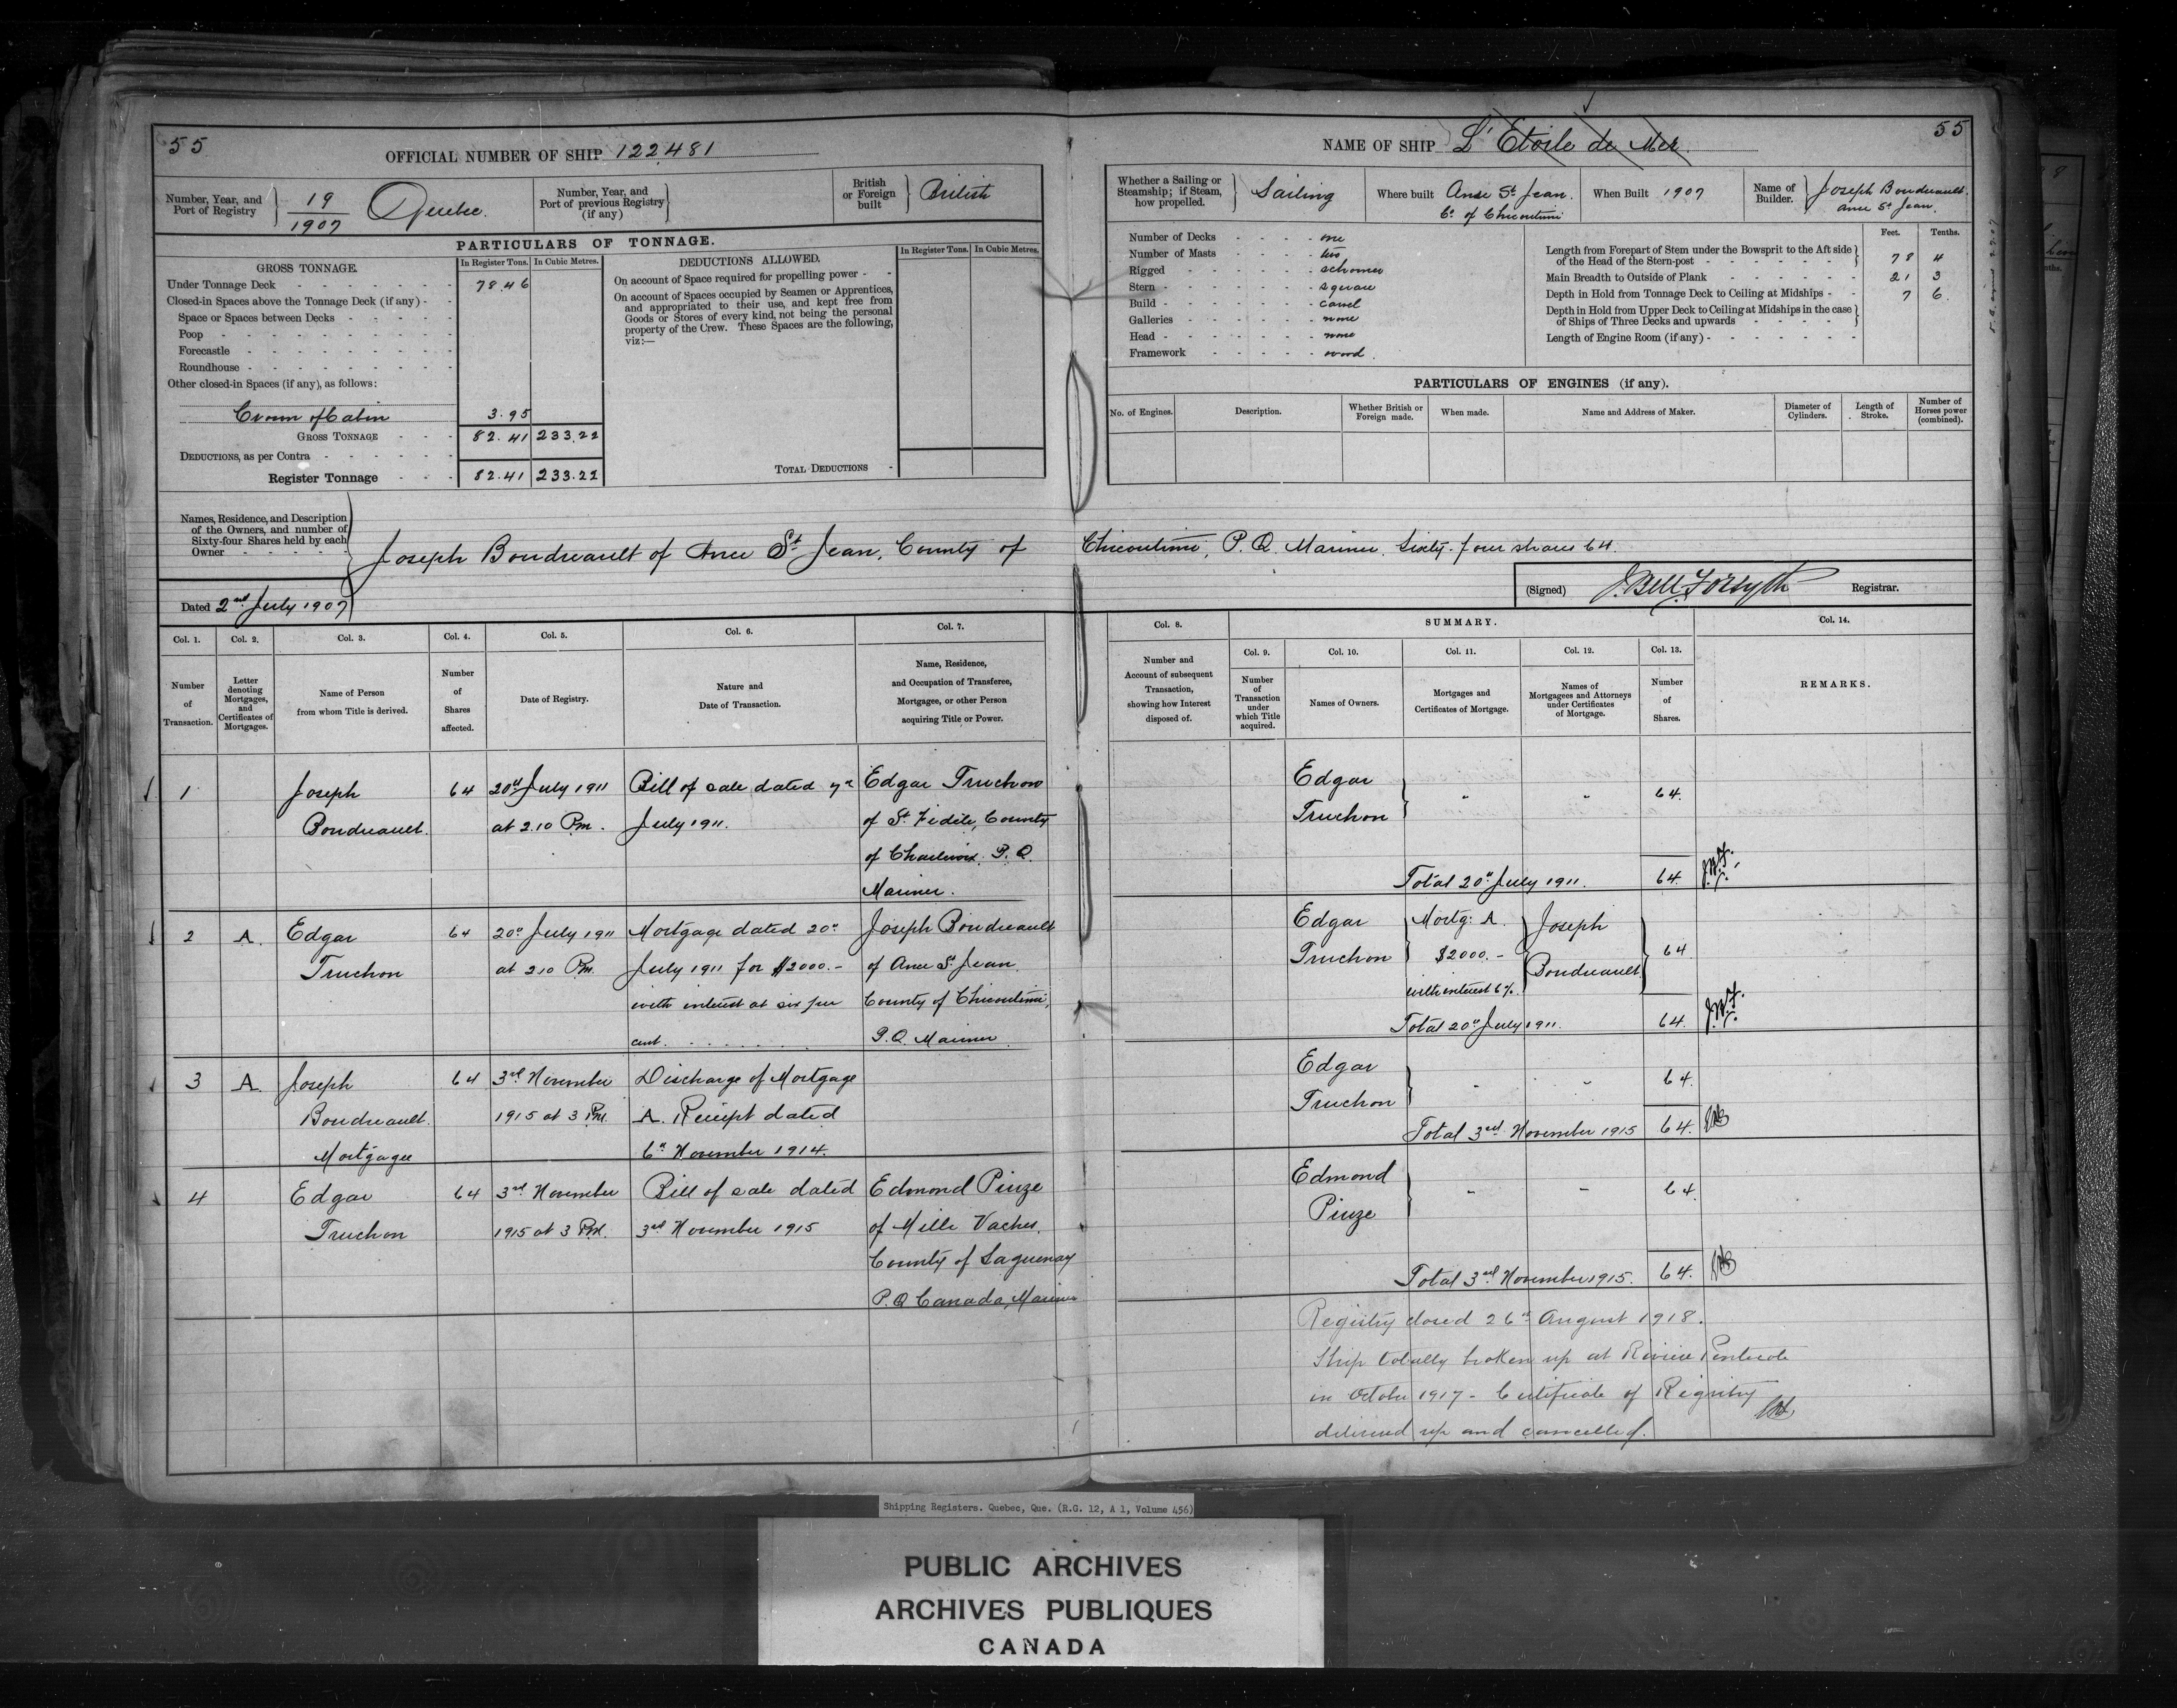 55
OFFICIAL NUMBER OF SHIP 122481
Number, Year, and Port of Registry
19
1907
Quebec.
Number, Year, and Port of previous Registry (if any)
British or Foreign built
British
PARTICULARS OF TONNAGE.
GROSS TONNAGE.
In Register Tons. In Cubic Metres.
Under Tonnage Deck 78.46
Closed-in Spaces above the Tonnage Deck (if any)
Space or Spaces between Decks
Poop
Forecastle
Roundhouse
Other closed-in Spaces (if any), as follows:
Crown of Cabin 3.95
GROSS TONNAGE 82.41 233.22
DEDUCTIONS, as per Contra
Register Tonnage 82.41 233.22
DEDUCTIONS ALLOWED.
In Register Tons. In Cubic Metres.
On account of Space required for propelling power
On account of Spaces occupied by Seamen or Apprentices,
and appropriated to their use, and kept free from
Goods or Stores of every kind, not being the personal
property of the Crew. These Spaces are the following,
viz:—
TOTAL DEDUCTIONS
55
NAME OF SHIP L'Etoile de Mer
Whether a Sailing or Steamship; if Steam, how propelled.
Sailing
Where built Anse St. Jean.
Co. of Chicoutimi
When Built 1907
Name of Builder.
Joseph Boudreault.
Anse St. Jean.
Number of Decks one
Number of Masts two
Rigged schooner
Stern square
Build carvel
Galleries none
Head none
Framework wood.
Feet. Tenths.
Length from Forepart of Stem under the Bowsprit to the Aft side
of the Head of the Stern-post 78 4
Main Breadth to Outside of Plank 21 3
Depth in Hold from Tonnage Deck to Ceiling at Midships 7 6.
Depth in Hold from Upper Deck to Ceiling at Midships in the case
of Ships of Three Decks and upwards
Length of Engine Room (if any)
PARTICULARS OF ENGINES (if any).
No. of Engines.
Description.
Whether British or Foreign made.
When made.
Name and Address of Maker.
Diameter of Cylinders.
Length of Stroke.
Number of Horses power (combined).
Names, Residence, and Description
of the Owners, and number of
Sixty-four Shares held by each
Owner
Joseph Boudreault of Anse St. Jean, County of Chicoutimi, P.Q. Mariner. Sixty-four shares 64.
Dated 2nd July 1907
(Signed) J. Bell Forsyth Registrar.
Col. 1. Col. 2. Col. 3. Col. 4. Col. 5. Col. 6. Col. 7.
Number of Transaction.
Letter denoting Mortgages, and Certificates of Mortgages.
Name of Person from whom Title is derived.
Number of Shares affected.
Date of Registry.
Nature and Date of Transaction.
Name, Residence, and Occupation of Transferee, Mortgagee, or other Person acquiring Title or Power.
Col. 8.
Number and Account of subsequent Transaction, showing how Interest disposed of.
SUMMARY.
Col. 9. Col. 10. Col. 11. Col. 12. Col. 13.
Number of Transaction under which Title acquired.
Names of Owners.
Mortgages and Certificates of Mortgage.
Names of Mortgagees and Attorneys under Certificates of Mortgage.
Number of Shares.
Col. 14.
REMARKS.
1 Joseph 64 20th July 1911 Bill of sale dated 7th Edgar Truchon
Boudreault. at 2.10 Pm. July 1911. of St. Fidèle, County
of Charlevoix. P.Q.
Mariner.
Edgar
Truchon 64.
Total 20th July 1911. 64.
2 A. Edgar 64 20th July 1911 Mortgage dated 20th Joseph Boudreault
Truchon at 2.10 Pm. July 1911 for $2000.- of Anse St. Jean
with interest at six per County of Chicoutimi,
cent. P.Q. Mariner
Edgar Mortg: A. Joseph
Truchon $2000.- Boudreault 64
with interest 6%.
Total 20th July 1911. 64.
3 A. Joseph 64 3rd November Discharge of Mortgage
Boudreault. 1915 at 3 Pm. A. Receipt dated
Mortgagee 6th November 1914.
Edgar
Truchon 64.
Total 3rd November 1915 64.
4 Edgar 64 3rd November Bill of sale dated Edmond Pinze
Truchon 1915 at 3 Pm. 3rd November 1915 of Mille Vaches.
County of Saguenay
P.Q Canada, Mariner
Edmond
Pinze 64.
Total 3rd November 1915. 64.
Registry closed 26th August 1918.
Ship totally broken up at Rivière Pentecote
in October 1917 - Certificate of Registry
delivered up and cancelled.
Shipping Registers. Quebec, Que. (R.G. 12, A 1, Volume 456)
PUBLIC ARCHIVES
ARCHIVES PUBLIQUES
CANADA